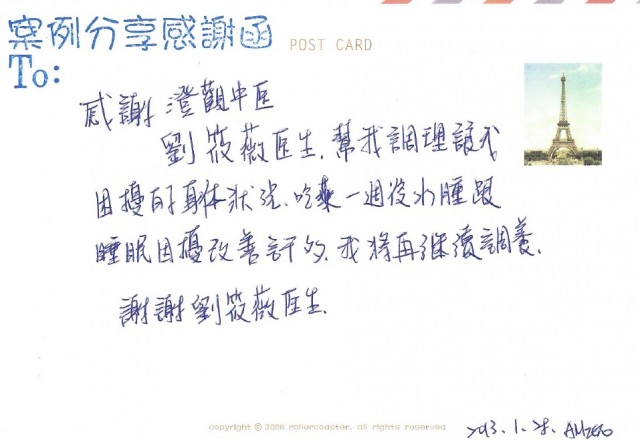 案例分享感謝函
POST CARD
To:
感謝 澄觀中医
劉筱薇医生.幫我調理讓我
困擾的身体狀況.吃藥一週後水腫跟
睡眠困擾改善許多.我將再繼續調養.
謝謝劉筱薇医生.
copyright © 2008 rollercoaster. all rights reserved